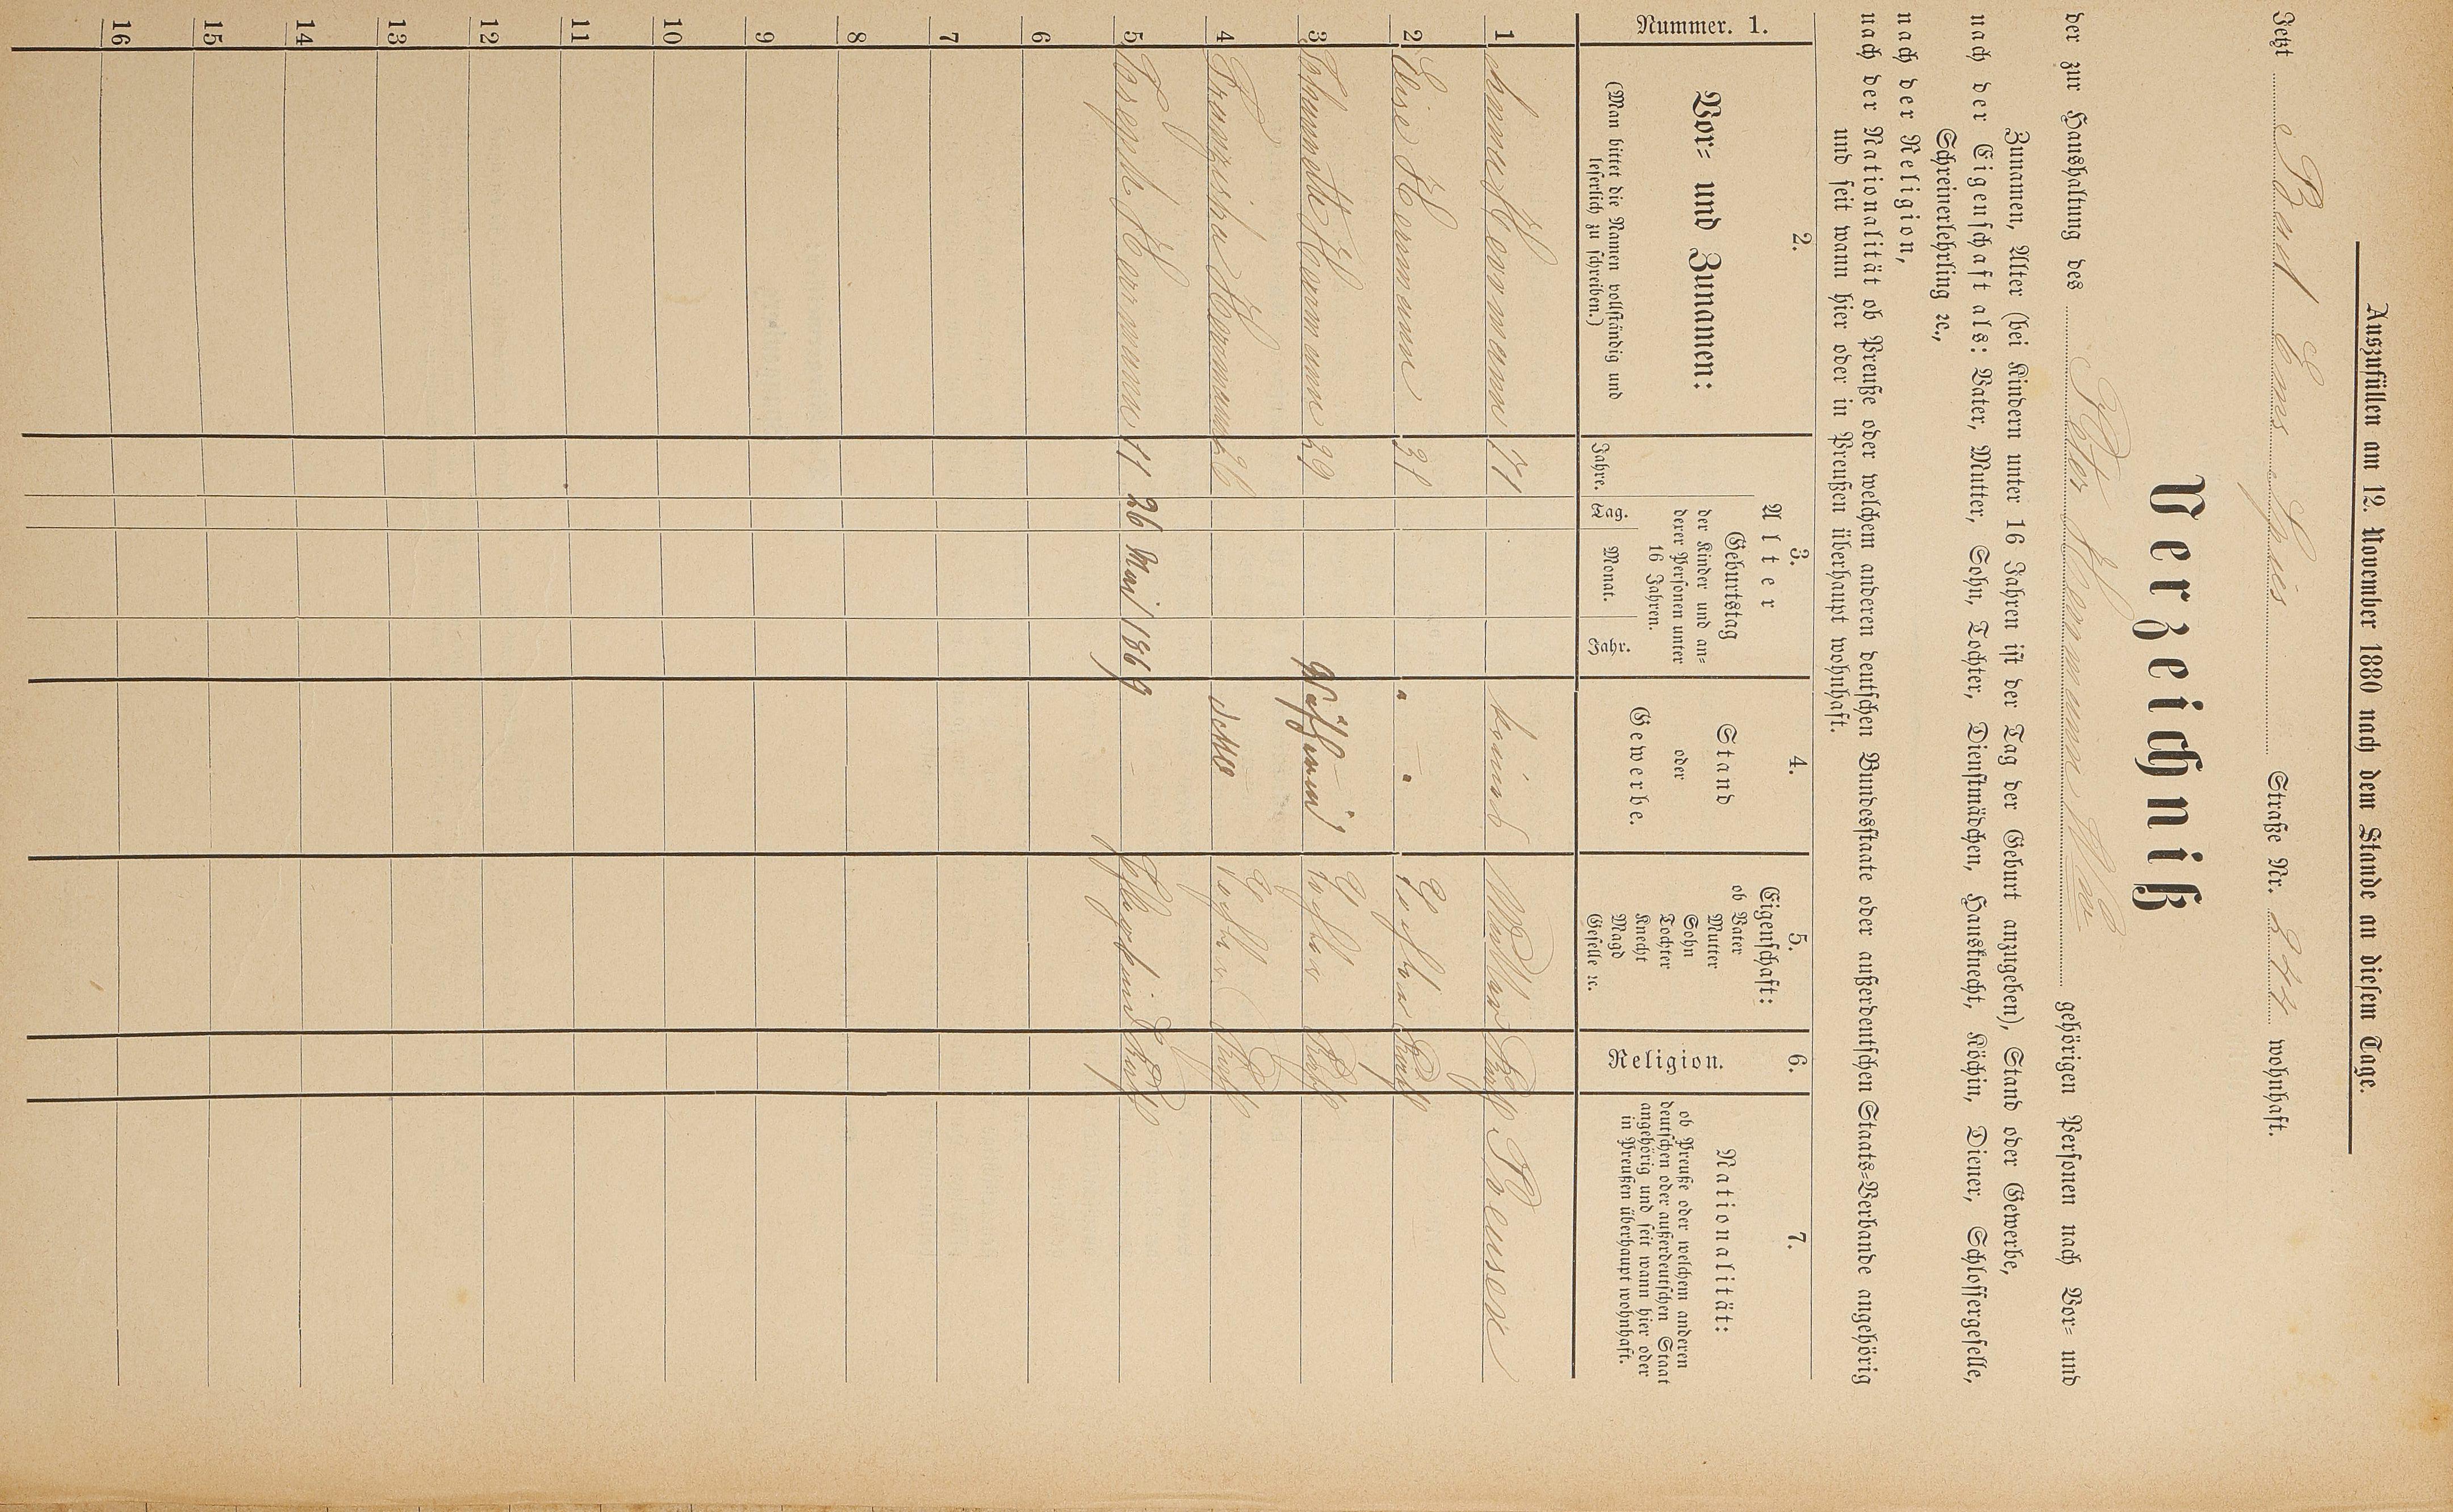 Auszufüllen am 12. November 1880 nach dem Stande an diesem Tage.
Jetzt Bad Ems Straße Nr. 244 wohnhaft.
Verzeichniß
der zur Haushaltung des Peter Hermann Ww gehörigen Personen nach Vor- und
Zunamen, Alter (bei Kindern unter 16 Jahren ist der Tag der Geburt anzugeben), Stand oder Gewerbe,
nach der Eigenschaft als: Vater, Mutter, Sohn, Tochter, Dienstmädchen, Hausknecht, Köchin, Diener, Schlossergeselle,
Schreinerlehrling ꝛc.,
nach der Religion,
nach der Nationalität ob Preuße oder welchem anderen deutschen Bundesstaate oder außerdeutschen Staats-Verbande angehörig
und seit wann hier oder in Preußen überhaupt wohnhaft.
Nummer. 1.
2.
Vor- und Zunamen:
(Man bittet die Namen vollständig und
leserlich zu schreiben.)
3.
Alter
Jahre.
Geburtstag
der Kinder und an-
derer Personen unter
16 Jahren.
Tag. Monat. Jahr.
4.
Stand
oder
Gewerbe.
5.
Eigenschaft:
ob Vater
Mutter
Sohn
Tochter
Knecht
Magd
Geselle ꝛc.
6.
Religion.
7.
Nationalität:
ob Preuße oder welchem anderen
deutschen oder außerdeutschen Staat
angehörig und seit wann hier oder
in Preußen überhaupt wohnhaft.
1 Hermann 71 Mutter Kath Preusse
2 Elise Hermann 31 " " Tochter Kath
3 Hermann 29 Näherin Tochter Kath
4 Franziska Hermann 26 detto Tochter Kath
5 Joseph Hermann 11 26 Mai 1869 - Pflegekind Kath
6
7
8
9
10
11
12
13
14
15
16